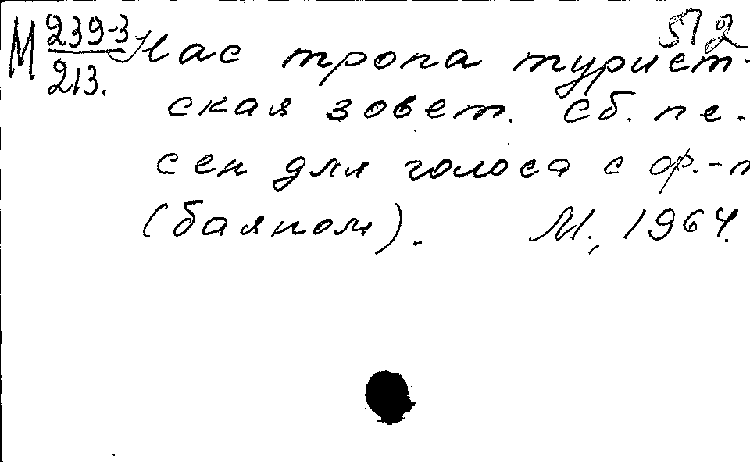 512
М 239-3
213.
Нас тропа турист-
ская зовет. Сб. пе-
сен для голоса с ф.-п
(баяном). М., 1964.